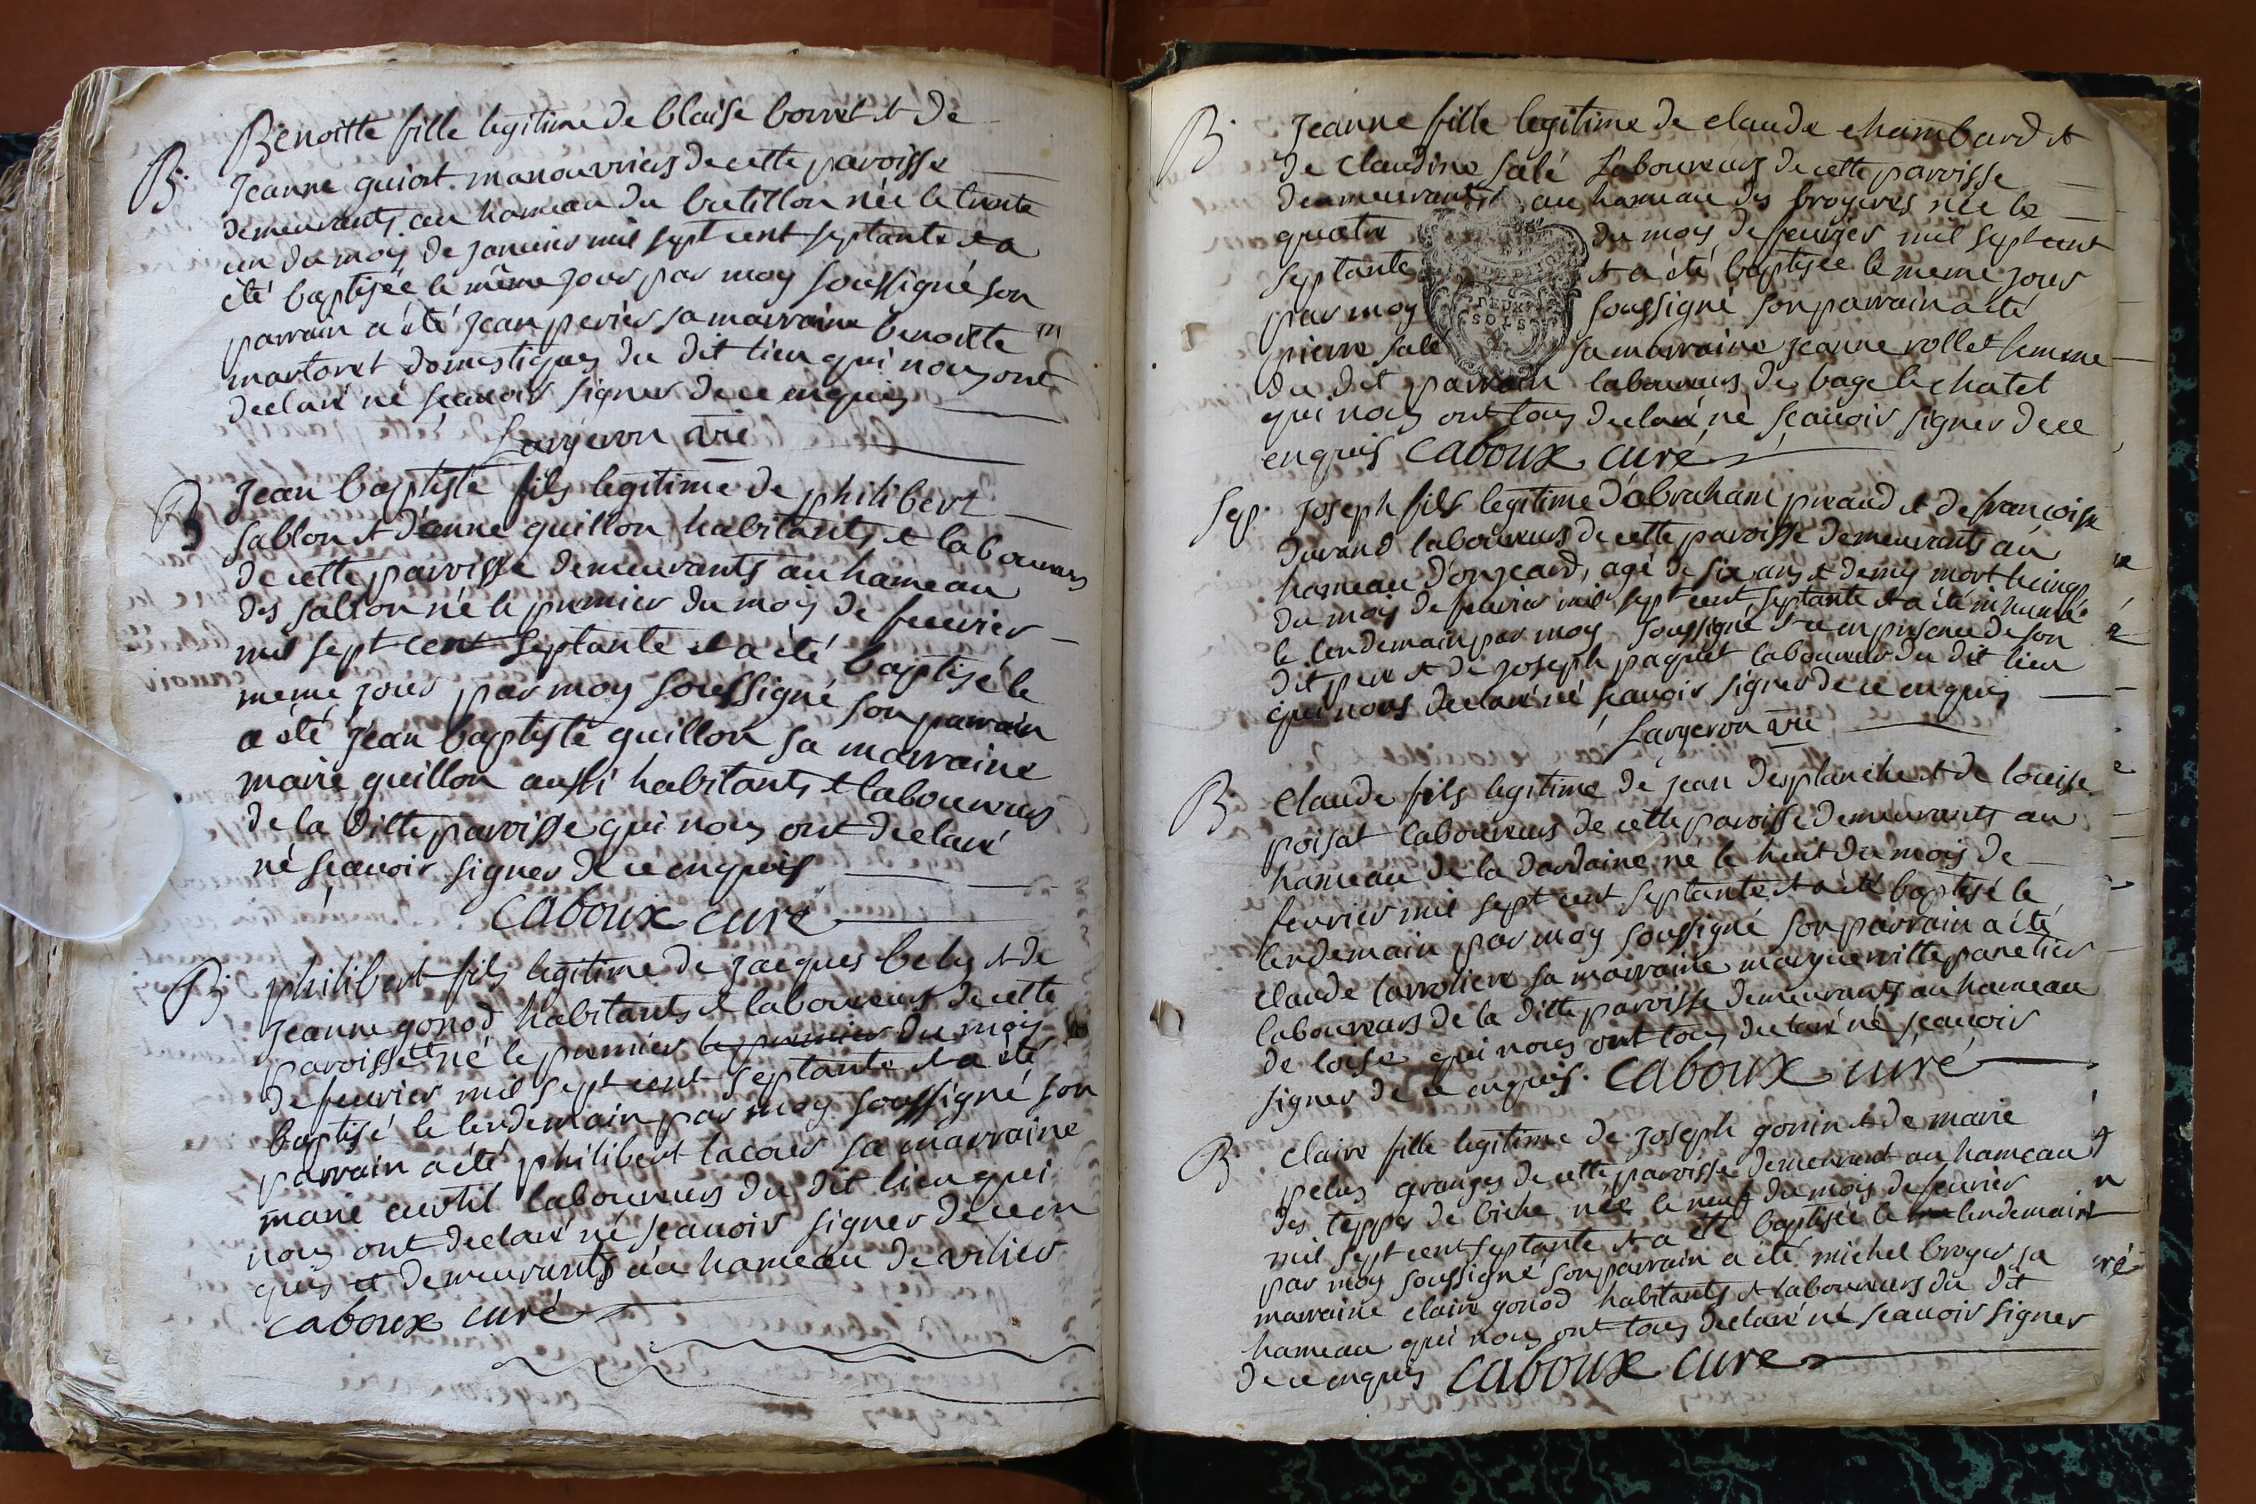 Benoitte fille legitime de blaise borret et de
B. Jeanne guiort manouvriers de cette paroisse
demeurants au hameau du butillon née le trente
un du moy de janvier mil sept cent septante et a
été baptisée le même jour par moy soussigné son
parrain a été jean perier sa marraine benoitte
martoret domestiques du dit lieu qui nous ont
declaré né scavoir signer de ce enquis
Largeron vic
B Jean baptiste fils legitime de philibert
sablon et d'anne guillon habitants et laboureurs
de cette paroisse demeurants au hameau
des sablon né le premier du moy de fevrier
mil sept cent septante et a été baptisé le
meme jour par moy soussigné son parrain
a été jean baptiste guillon sa marraine
marie guillon aussi habitants et laboureurs
de la ditte paroisse qui nous ont declaré
né scavoir signer de ce enquis
caboux curé
B philibert fils legitime de jacques bely et de
jeanne gonod habitants et laboureurs de cette
paroisse né le premier le premier du mois
de fevrier mil sept cent septante et a été
baptisé le lendemain par moy soussigné son
parrain a été philibert lacour sa marraine
marie curtil laboureurs du dit lieu qui
nous ont declaré né scavoir signer de ce en
quis et demeurants au hameau de vilier
caboux curé
B. Jeanne fille legitime de claude chambard et
de claudine salé laboureurs de cette paroisse
demeurants au hameau des broyeres née le
quatre du moy de fevrier mil sept cent
septante et a été baptisée le meme jour
par moy soussigné son parrain a été
pierre salé sa marraine jeanne rollet femme
du dit parrain laboureurs de bage le chatel
qui nous ont tous declaré né scavoir signer de ce
enquis caboux curé
DEUX
SOLS
Sep. Joseph fils legitime d'abraham preaud et de francoise
durand laboureurs de cette paroisse demeurants au
hameau d'onjeard, agé de six ans et demy mort le cinq
du moy de fevrier mil sept cent septante et a été inhumé
le lendemain par moy soussigné et ce en presence de son
dit pere et de joseph paquet laboureur du dit lieu
qui nous declaré né scavoir signer de ce enquis
Largeron vic
B. Claude fils legitime de jean desplanche et de louise
poisat laboureurs de cette paroisse demeurants au
hameau de la dardaine né le huit du mois de
fevrier mil sept cent septante et a été baptisé le
lendemain par moy soussigné son parrain a été
claude carroliere sa marraine margueritte panetier
laboureurs de la ditte paroisse demeurants au hameau
de loese qui nous ont tous declaré né scavoir
signer de ce enquis. caboux curé
B. Claire fille legitime de joseph gonin et de marie
pelus granges de cette paroisse demeurant au hameau
des teppes de biche née le neuf du mois de fevrier
mil sept cent septante et a été baptisée le lendemain
par moy soussigné son parrain a été michel broyer sa
marraine claire gonod habitants et laboureurs du dit
hameau qui nous ont tous declaré né scavoir signer
de ce enquis caboux curé